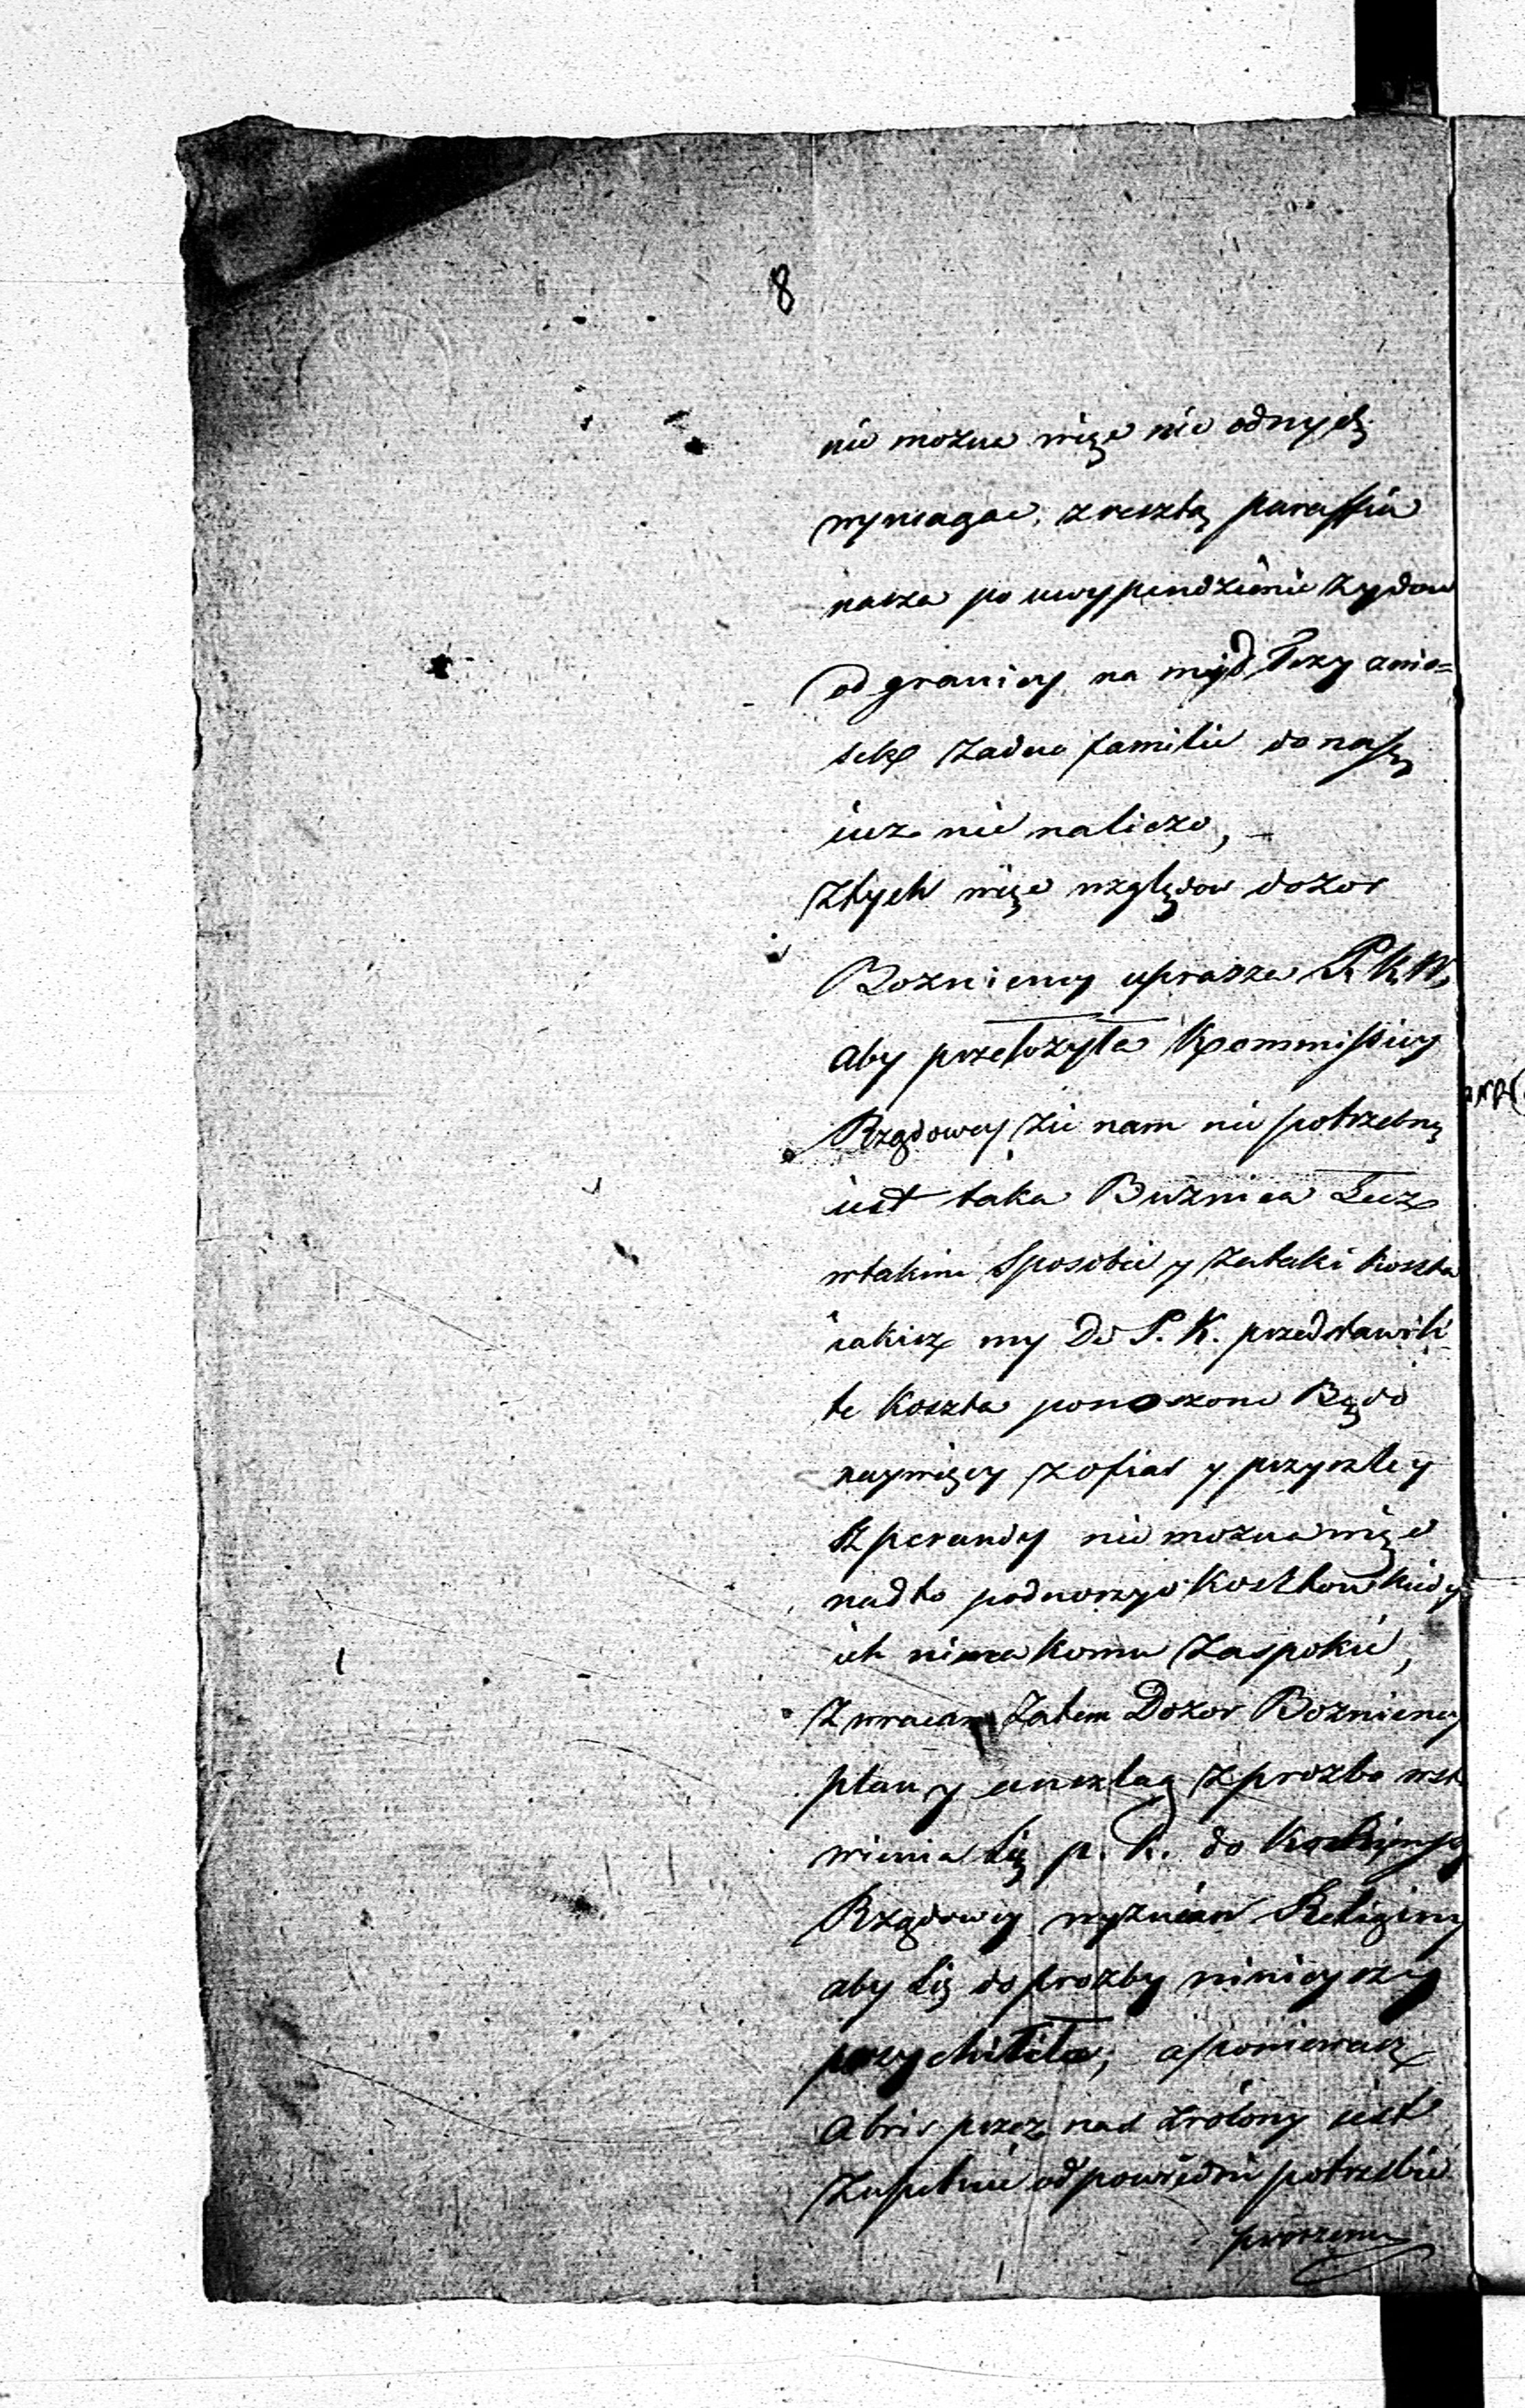 8
nie można więc nic od nych
wymagac, zresztą paraffia
nasza po uwypendzenie Zydow
od granicy na myd
żadne familie do nasz
iuz nie naliczo,
Ztych więc względow dozor
Boznicny uprasza P. K. W.
aby przełożyła Kommissiey
Rządowey zie nam nie potrzebny
iest taka Buznica Lecz
wtakim sposobie y zataki koszta
iakicz my Do P. K. przedstawili
te koszta ponoszone Będo
naywięcy zofiar y przyszley
nie można więc
nadto podnoszyc Kosztow kiedy
ich nima komu zaspokić,
Zwracam zatem Dozor Boznicny
plan y anszlag z prozbo wst
wienia się p. K. do
Rządowey wyznian Religiny
aby się do prozby ninieyszy
przychiliła; a poniewasz
abris przez nas zrobiony iest
Zupełnie odpowiedni potrzebie